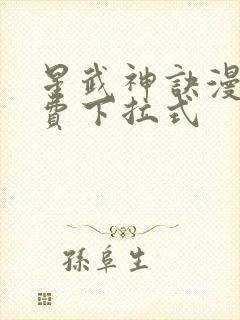 星武神訣漫
費下拉式
孫阜生